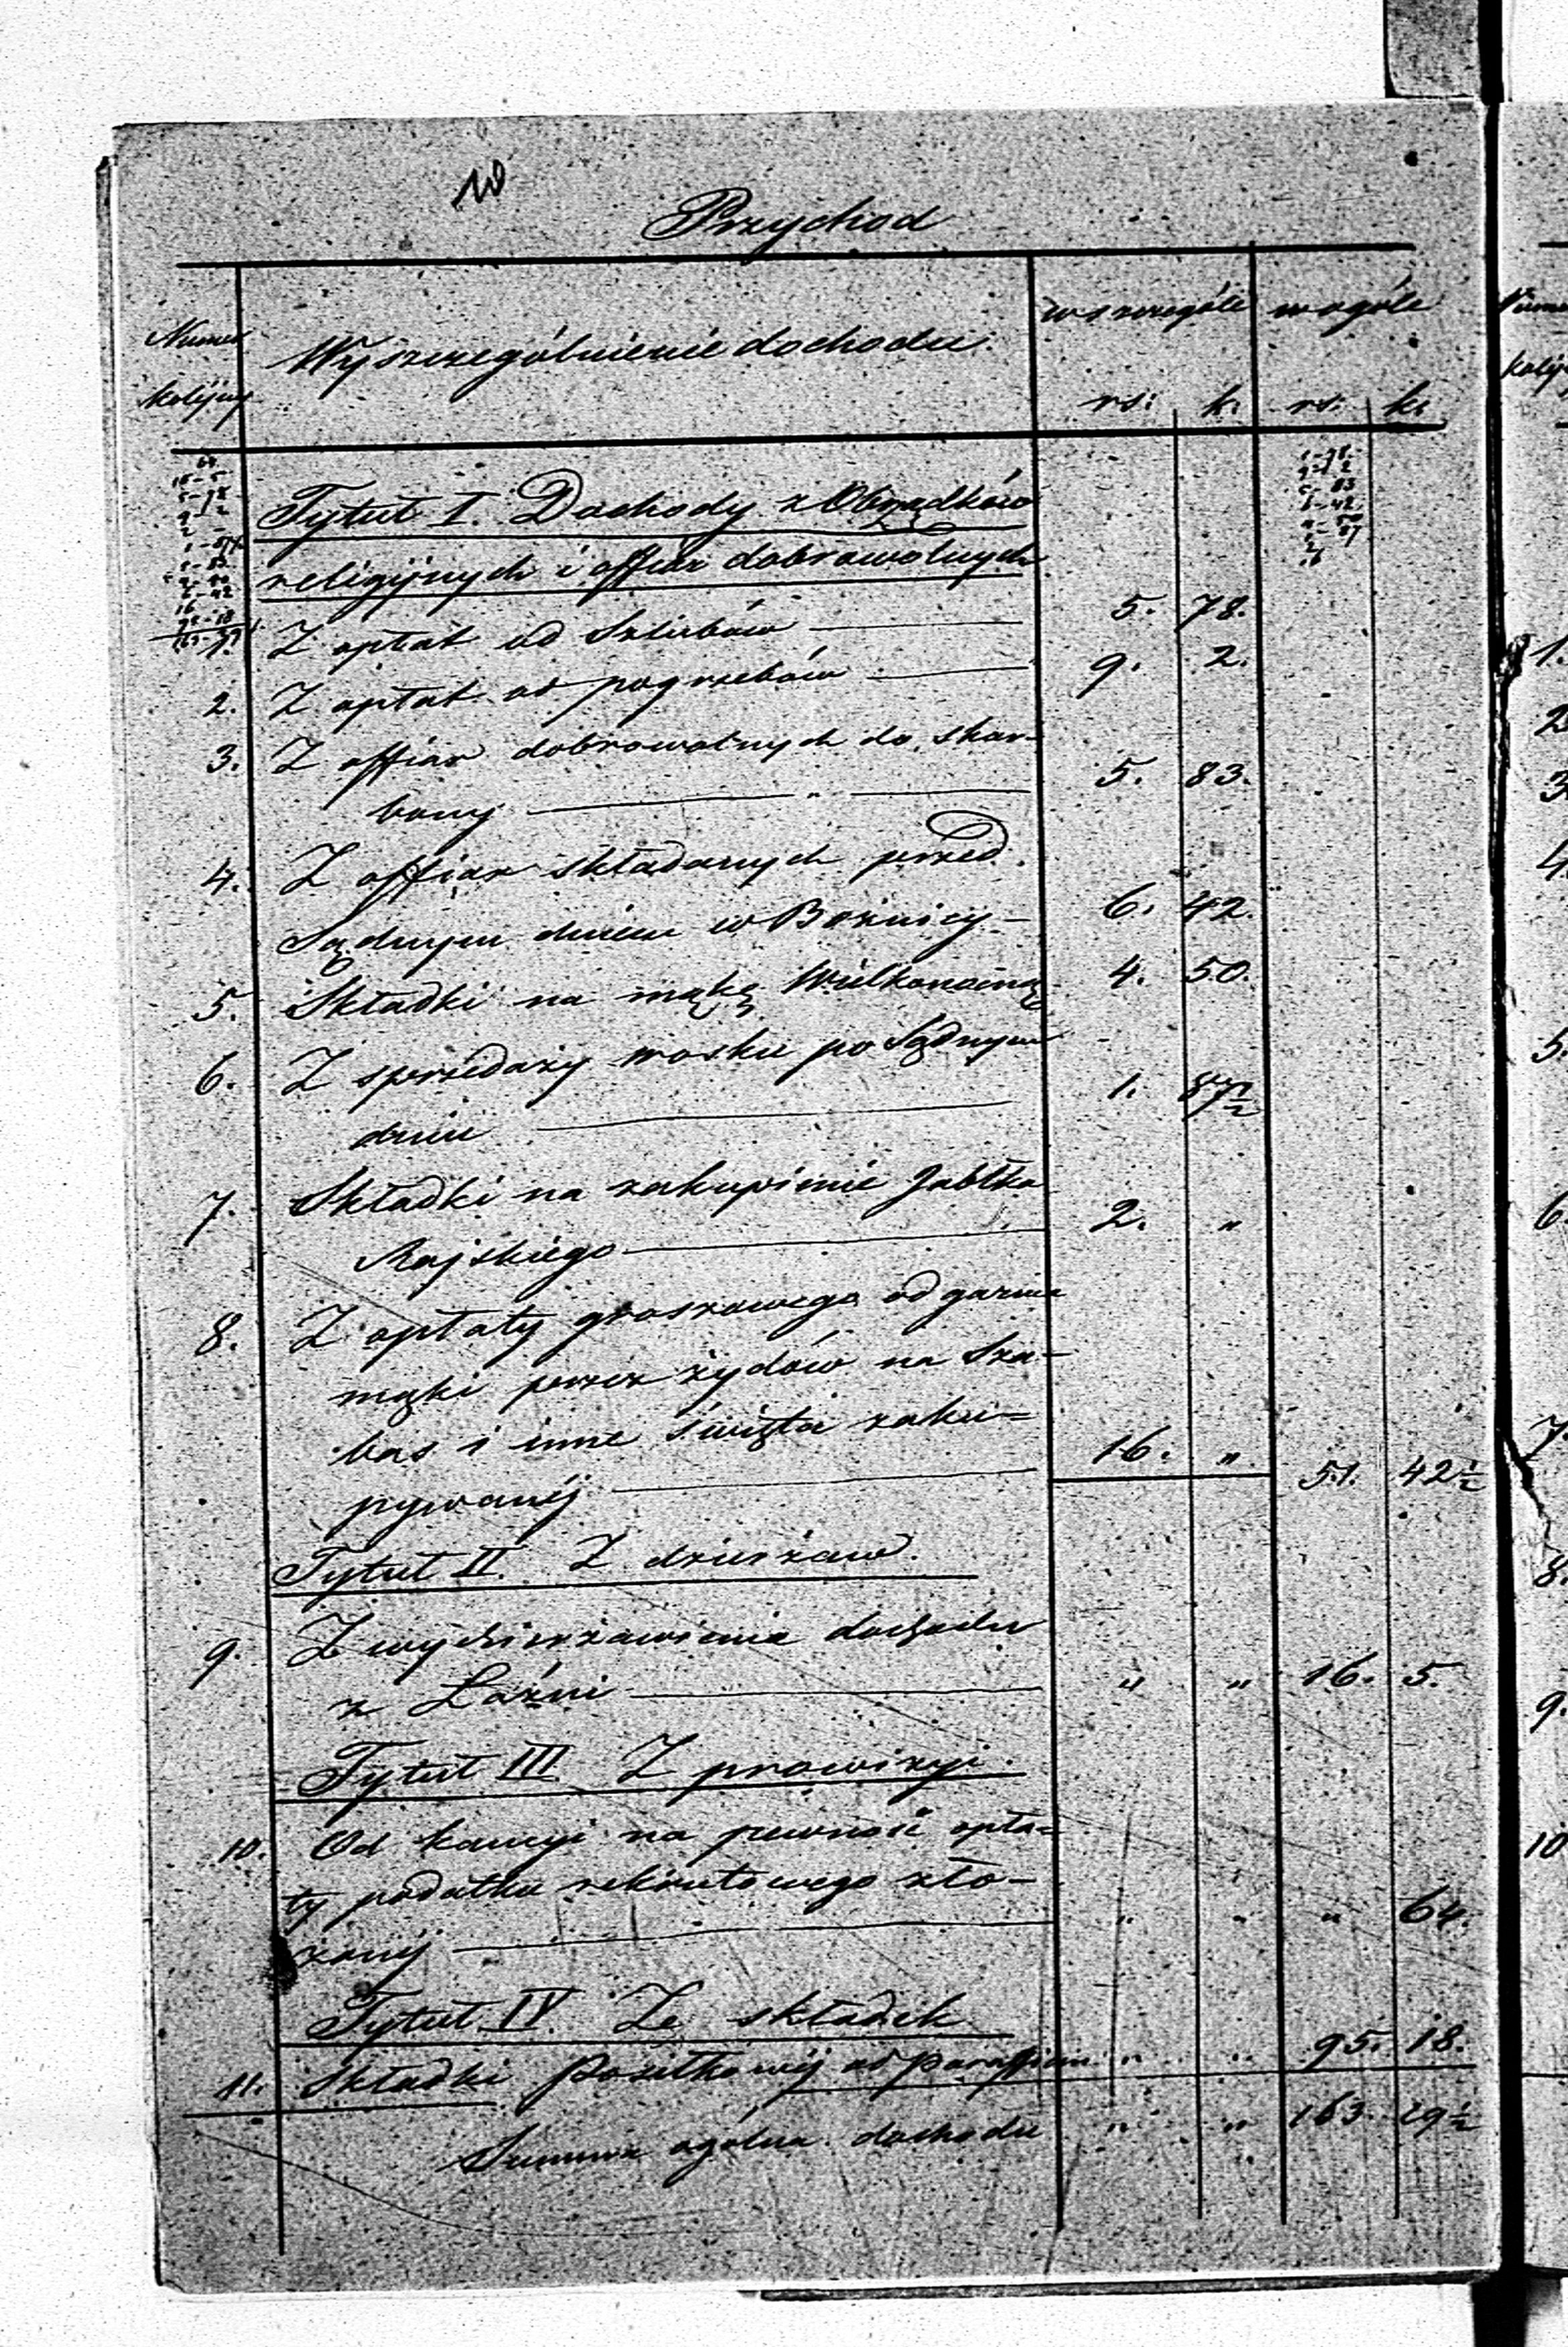 10
Przychod
Numer kolejny
Wyszczególnienie dochodu.
w szczególe
w ogóle
rs: k. rs. k.
Tytuł I. Dochody z Obrządków
religijnych i offiar dobrowolnych
1. Z opłat od Szlubów 5. 78.
2. Z opłat od pogrzebów 9. 2.
3. Z offiar dobrowolnych do skar-
bony " 5. 83.
4. Z offiar składanych przed
Sądnym dniem w Bożnicy 6. 42.
5. Składki na mąkę Wielkanocną 4. 50.
6. Z sprzedaży wosku po Sądnym
dniu 1. 87½
7. Składki na zakupienie Jabłka
Rajskiego 2. "
8. Z opłaty groszowego od garnca
mąki przez żydów na Sza-
bas i inne święta zaku=
pywanéj 16. " 51. 42½
Tytuł II. Z dzierżaw.
9. Z wydzierżawienia dochodu
z Łaźni " " 16. 5.
Tytuł III Z prowizyi.
10. Od kaucyi na pewność opła=
ty podatku rekrutowego zło-
żonéj " " " 64.
Tytuł IV. Ze składek
11. Składki Posiłkowéj od Paraffian " " 95. 18.
Summa ogólna dochodu " " 163. 29½